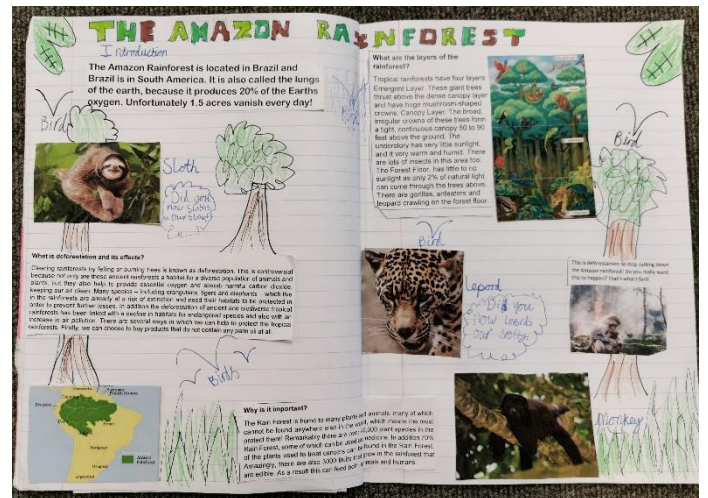 THE AMAZON RAINFOREST
Introduction
The Amazon Rainforest is located in Brazil and
Brazil is in South America. It is also called the lungs
of the earth, because it produces 20% of the Earths
oxygen. Unfortunately 1.5 acres vanish every day!
Bird
Sloth
Did you
now Sloths
our slow!
What is deforestation and its effects?
Clearing rainforests by felling or burning trees is known as deforestation. This is controversial
because not only are these ancient rainforests a habitat for a diverse population of animals and
plants, but they also help to provide essential oxygen and absorb harmful carbon dioxide,
keeping our air clean. Many species – including orangutans, tigers and elephants – which live
in the rainforests are already at risk of extinction and need their habitats to be protected in
order to prevent further losses. In addition the deforestation of ancient and biodiverse tropical
rainforests has been linked with a decline in habitats for endangered species and also with an
increase in air pollution. There are several ways in which we can help to protect the tropical
rainforests. Firstly, we can choose to buy products that do not contain any palm oil at all.
Birds
Why is it important?
The Rain Forest is home to many plants and animals, many of which
cannot be found anywhere else in the world, which means we must
protect them! Remarkably there are over
,000 plant species in the
Rain Forest, some of which can be used as medicine. In addition 70%
of the plants used to treat cancers can be found in the Rain Forest.
Amazingly, there are also 3000 fruits that grow in the rainforest that
are edible. As a result this can feed both animals and humans.
What are the layers of the
rainforest?
Tropical rainforests have four layers.
Emergent Layer. These giant trees
thrust above the dense canopy layer
and have huge mushroom-shaped
crowns. Canopy Layer. The broad,
irregular crowns of these trees form
a tight, continuous canopy 60 to 90
feet above the ground. The
understory has very little sunlight,
and it very warm and humid. There
are lots of insects in this area too.
The Forest Floor, has little to no
sunlight as only 2% of natural light
can come through the trees above.
There are gorillas, anteaters and
leopard crawling on the forest floor.
Bird
Bird
Lepord
Did you
now
our spotty.
This is deforestation to stop cutting down
the Amazon rainforest! Do you really want
this to happen? That's what I said
Monkey